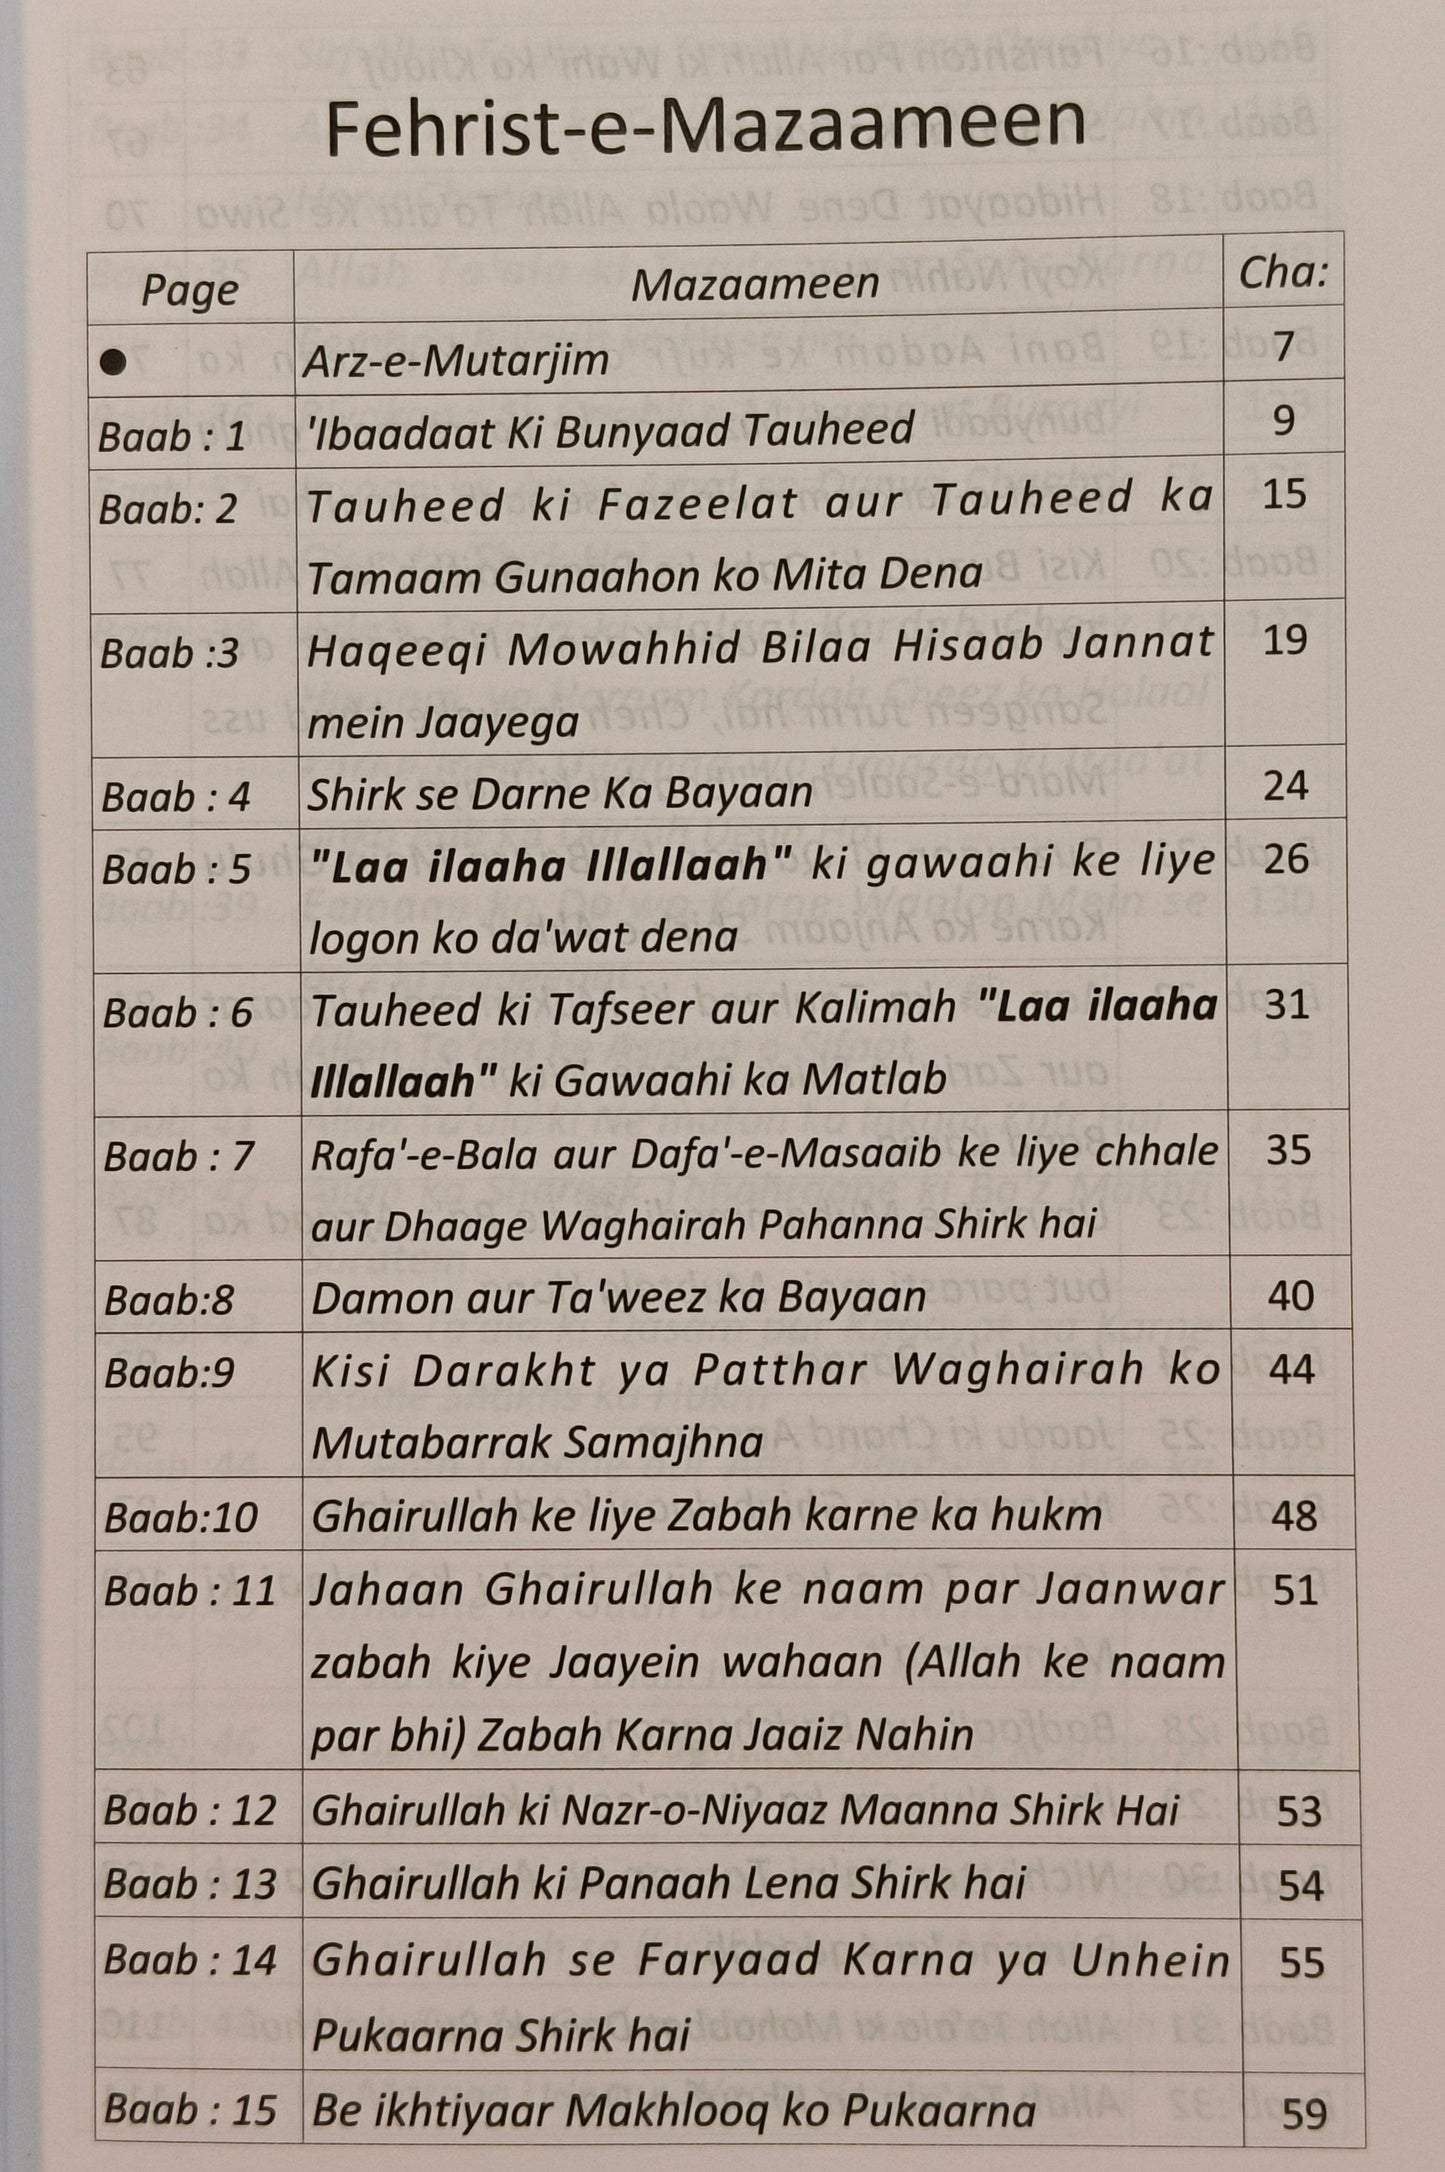 Fehrist-e-Mazaameen
Page Mazaameen Cha:
● Arz-e-Mutarjim 7
Baab : 1 'Ibaadaat Ki Bunyaad Tauheed 9
Baab: 2 Tauheed ki Fazeelat aur Tauheed ka 15
Tamaam Gunaahon ko Mita Dena
Baab :3 Haqeeqi Mowahhid Bilaa Hisaab Jannat 19
mein Jaayega
Baab : 4 Shirk se Darne Ka Bayaan 24
Baab : 5 "Laa ilaaha Illallaah" ki gawaahi ke liye 26
logon ko da'wat dena
Baab : 6 Tauheed ki Tafseer aur Kalimah "Laa ilaaha 31
Illallaah" ki Gawaahi ka Matlab
Baab : 7 Rafa'-e-Bala aur Dafa'-e-Masaaib ke liye chhale 35
aur Dhaage Waghairah Pahanna Shirk hai
Baab:8 Damon aur Ta'weez ka Bayaan 40
Baab:9 Kisi Darakht ya Patthar Waghairah ko 44
Mutabarrak Samajhna
Baab:10 Ghairullah ke liye Zabah karne ka hukm 48
Baab : 11 Jahaan Ghairullah ke naam par Jaanwar 51
zabah kiye Jaayein wahaan (Allah ke naam
par bhi) Zabah Karna Jaaiz Nahin
Baab : 12 Ghairullah ki Nazr-o-Niyaaz Maanna Shirk Hai 53
Baab : 13 Ghairullah ki Panaah Lena Shirk hai 54
Baab : 14 Ghairullah se Faryaad Karna ya Unhein 55
Pukaarna Shirk hai
Baab : 15 Be ikhtiyaar Makhlooq ko Pukaarna 59